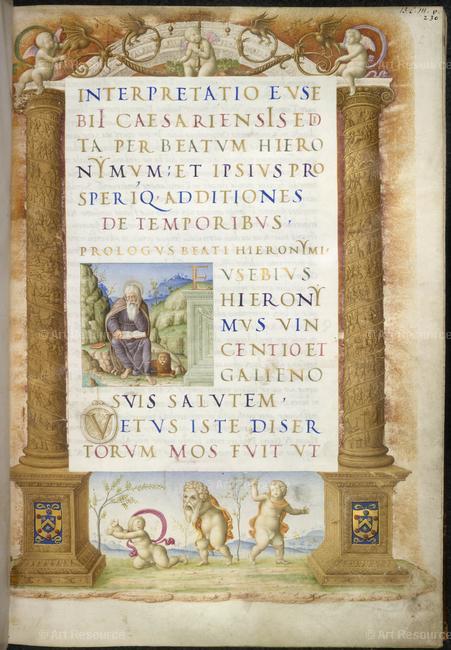 B.C.III.
230
INTERPRETATIO EVSE
BII CAESARIENSIS ED
TA PER BEATVM HIERO
NYMVM: ET IPSIVS PRO
SPERIQ. ADDITIONES
DE TEMPORIBVS.
PROLOGVS BEATI HIERONYMI.
E VSEBIVS
HIERONY
MVS VIN
CENTIO ET
GALIENO
SVIS SALVTEM.
VETVS ISTE DISER
TORVM MOS FVIT VT
© Art Resource
© Art Resource